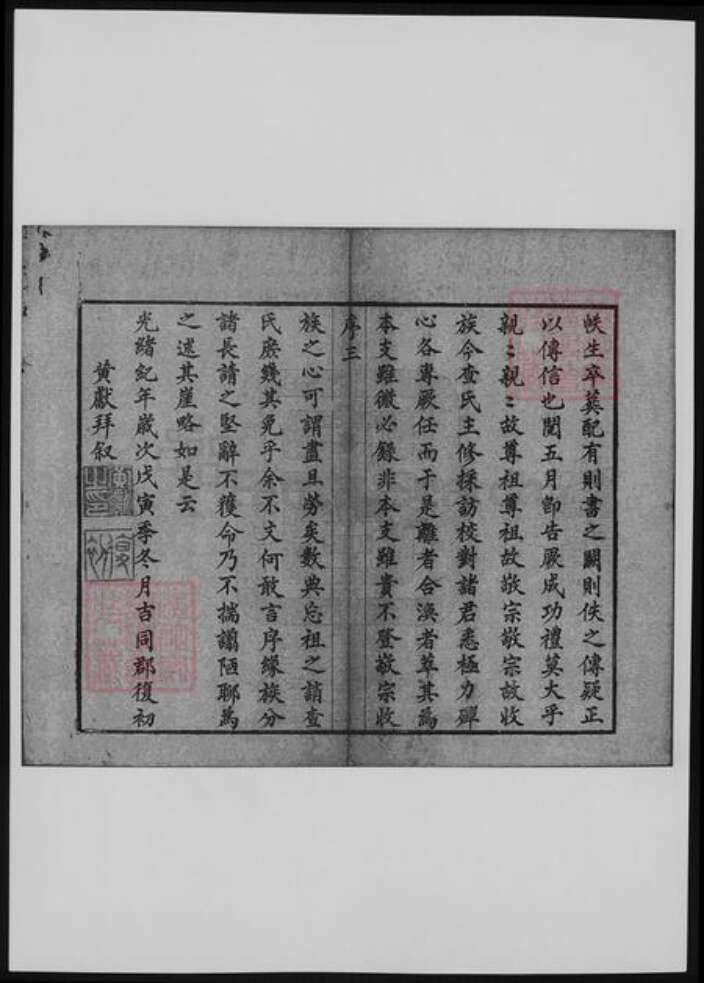 帙生卒葬配有則書之闕則佚之傳疑正
以傳信也閱五月卽告厥成功禮莫大乎
親〻親〻故尊祖尊祖故敬宗敬宗故收
族今查氏主修採訪校對諸君悉極力殫
心各專厥任而于是離者合渙者萃其為
本支雖微必錄非本支雖貴不登敬宗收
序三
族之心可謂盡且勞矣數典忘祖之誚查
氏庶幾其免乎余不文何敢言序緣族分
諸長請之堅辭不獲命乃不揣謭陋聊為
之述其崖略如是云
光緒紀年歲次戊寅季冬月吉同郡復初
黄獻拜叙